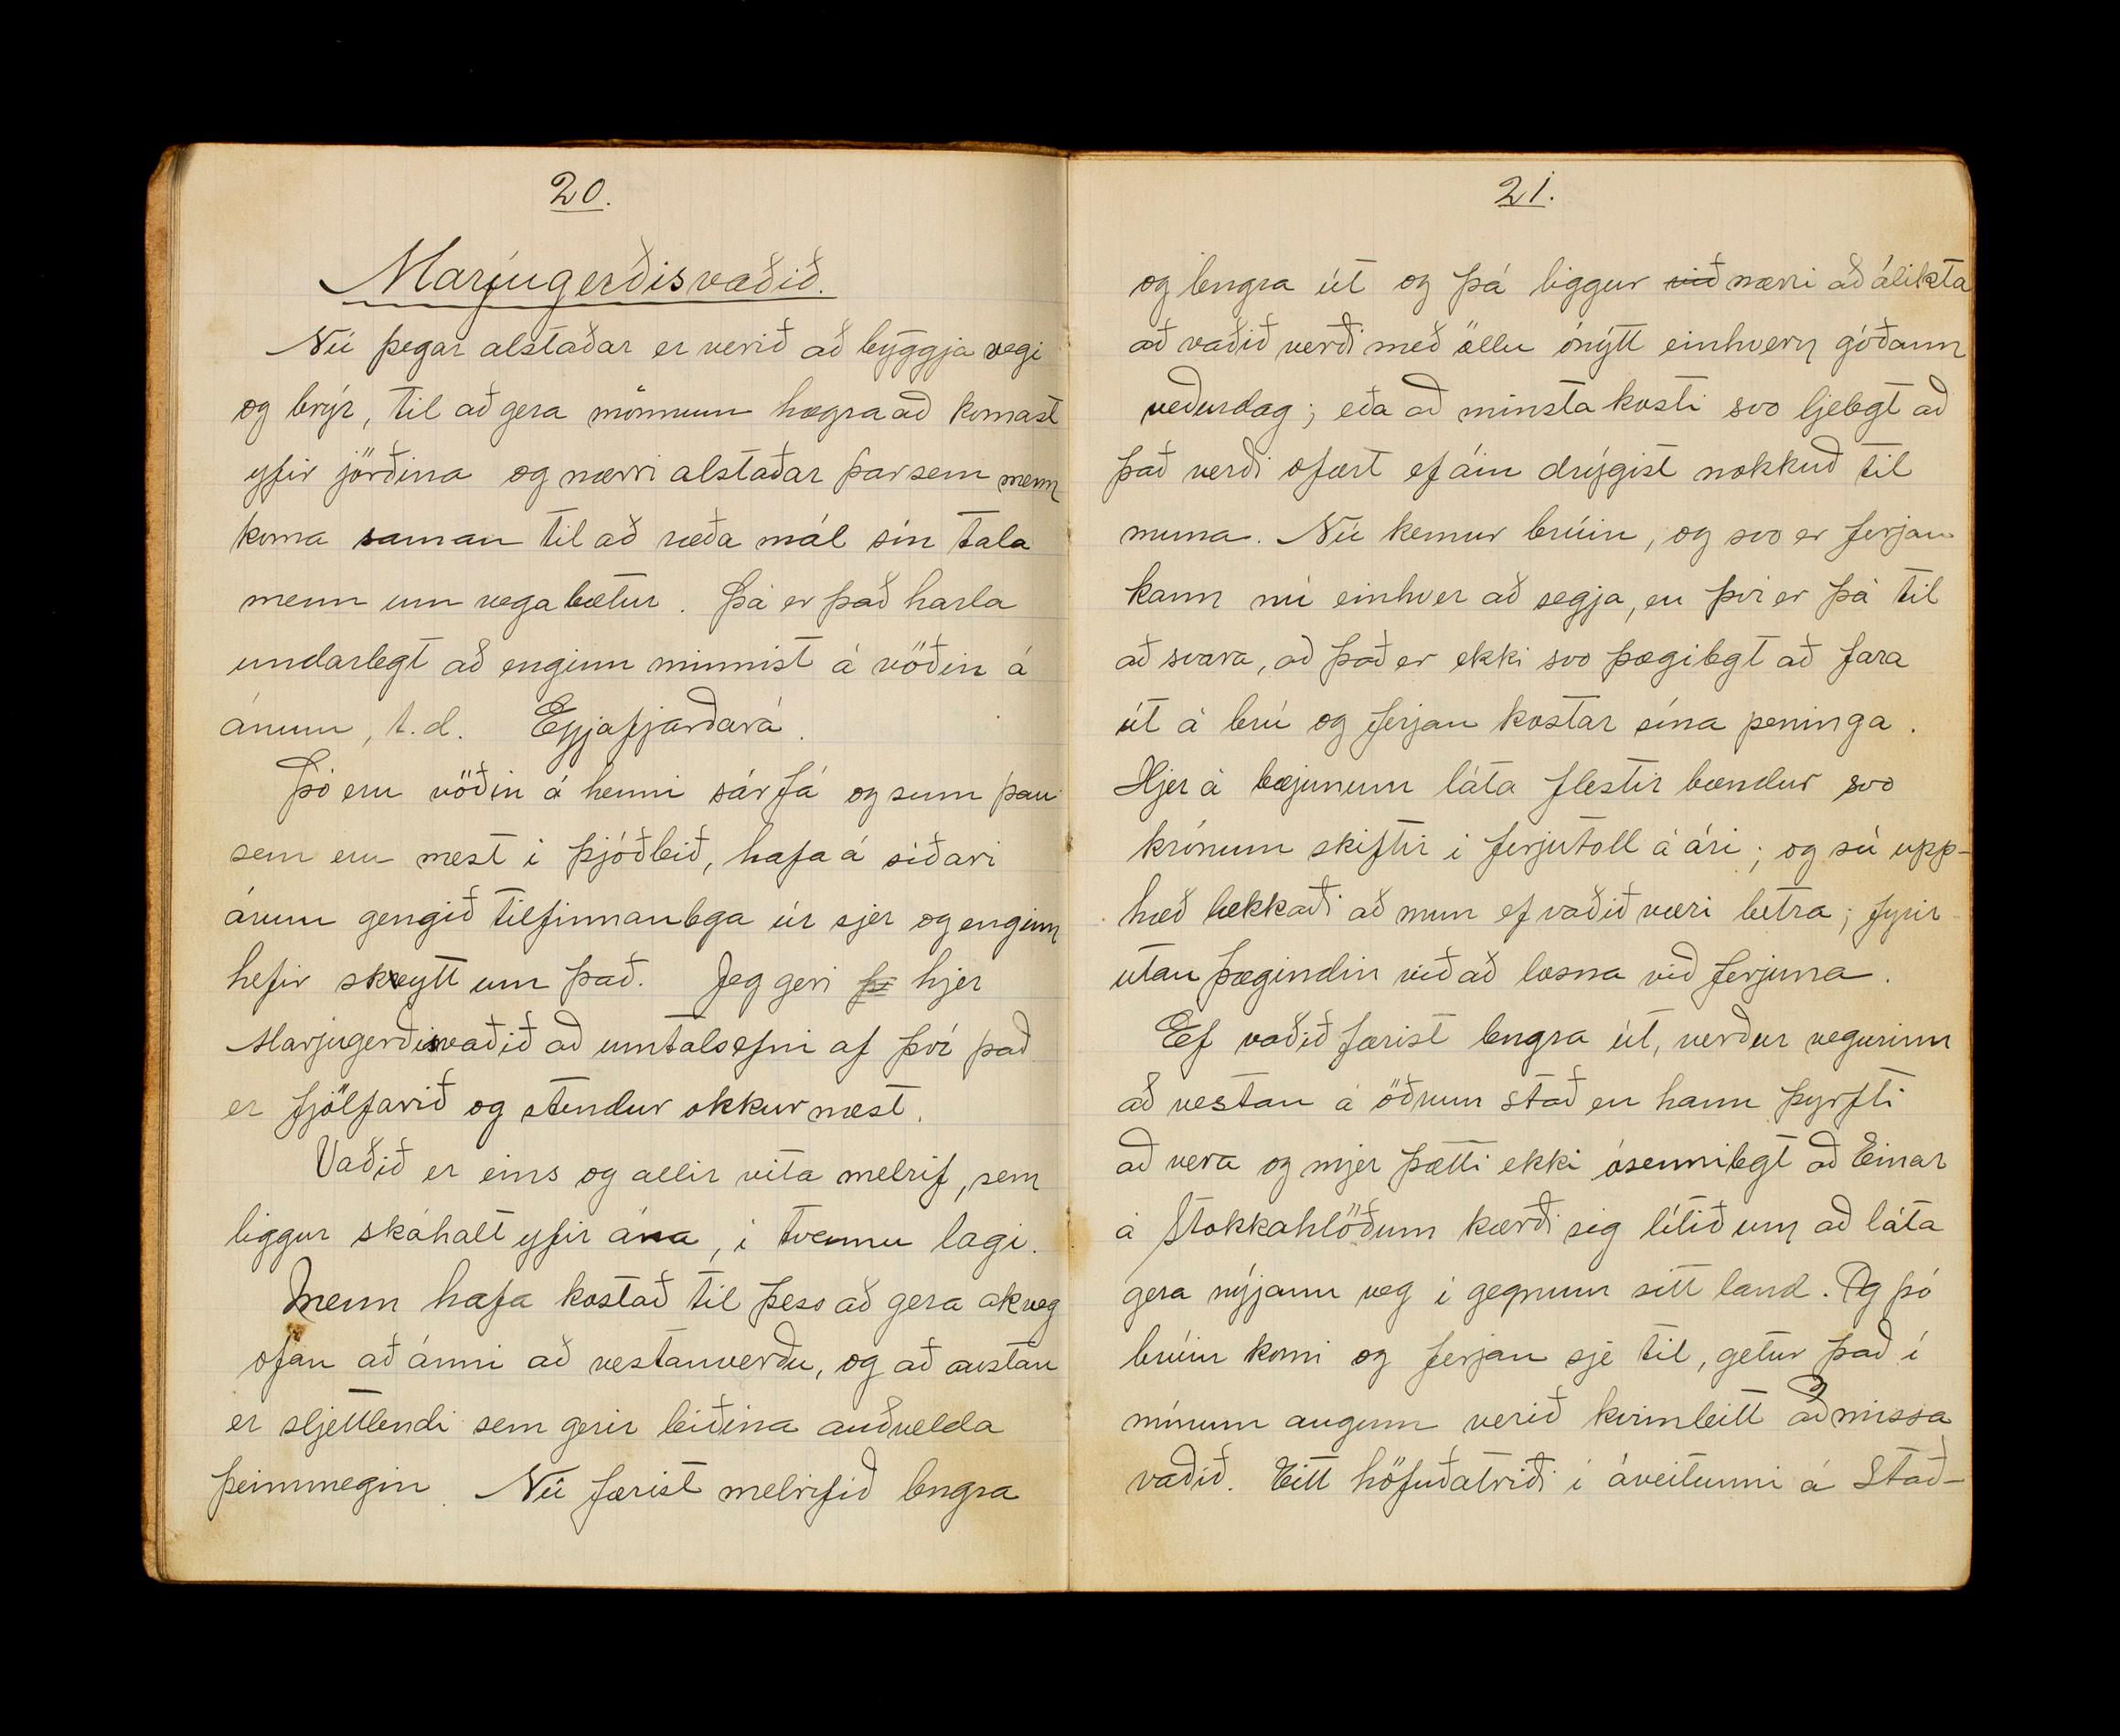 20.
Marjugerðisvaðið.
Nú þegar alstaðar er verið að byggja vegi
og brýr, til að gera mönnum hægra að komast
yfir jörðina og nærri alstaðar þar sem menn
koma saman til að ræða mál sín tala
menn um vegabætur. Þá er það harla
undarlegt að enginn minnist á vöðin á
ánum, t.d. Eyjafjarðará.
Þó eru vöðin á henni sárfá og sum þau
sem eru mest í þjóðleið, hafa á síðari
árum gengið tilfinnanlega úr sjer og enginn
hefir skeytt um það. Jeg geri hjer
Marjugerðisvaðið að umtalsefni af því það
er fjölfarið og stendur okkur næst.
Vaðið er eins og allir vita melrif, sem
liggur skáhalt yfir ána, í tvennu lagi.
Menn hafa kostað til þess að gera akveg
ofan að ánni að vestanverðu, og að austan
er sljettlendi sem gerir leiðina auðvelda
þeimmegin. Nú færist melrifið lengra
21.
og lengra út og þá liggur við nærri að álikta
að vaðið verði með öllu ónýtt einhvern góðann
veðurdag; eða að minsta kosti svo ljelegt að
það verði ofært ef áin drýgist nokkuð til
muna. Nú kemur brúin, og svo er ferjan
kann nú einhver að segja, en því er þá til
að svara, að það er ekki svo þægilegt að fara
út á brú og ferjan kostar sína peninga.
Hjer á bæjunum láta flestir bændur svo
krónum skiftir í ferjutoll á ári; og sú upp-
hæð lækkaði að mun ef vaðið væri betra; fyrir
utan þægindin við að losna við ferjuna.
Ef vaðið færist lengra út, verður vegurinn
að vestan á öðrum stað en hann þyrfti
að vera og mjer þætti ekki ósennilegt að Einar
á Stokkahlöðum kærði sig lítið um að láta
gera nýjann veg í gegnum sitt land. Og þó
brúin komi og ferjan sje til, getur það í
mínum augum verið kvimleitt að missa
vaðið. Eitt höfuðatriði í áveitunni á Stað-